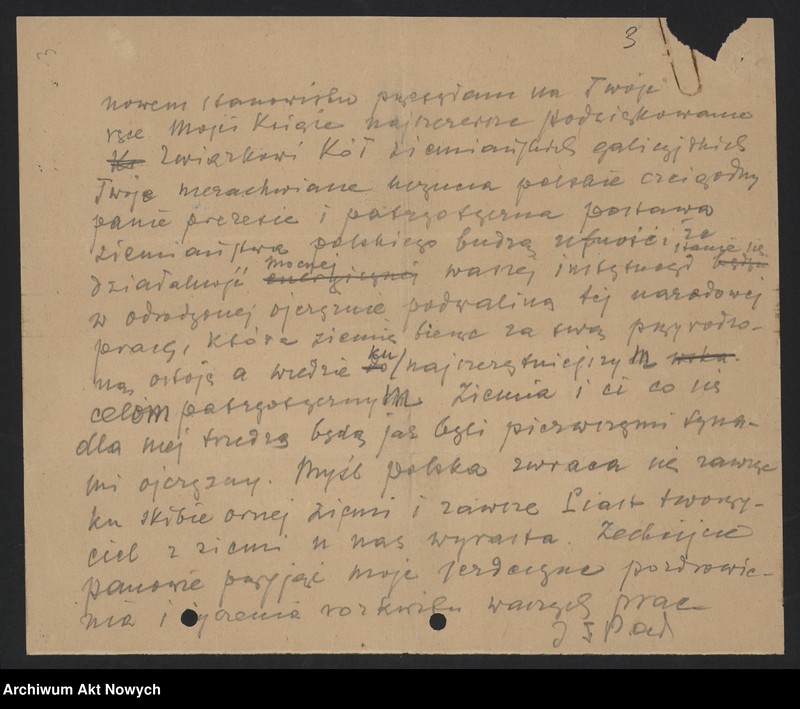 3
nowem stanowisku przesyłam na Twoje
ręce Mości Książe najszczersze podziękowanie
Związkowi Kół Ziemiańskich galicyjskich
Twoje niezachwiane uczucia polskie czcigodny
panie prezesie i patryotyczna postawa
ziemiaństwa polskiego budzą ufność iż
działalność mocnej energicznej waszej instytucyi stanie się będzie
w odrodzonej ojczyznie podwaliną tej narodowej
pracy, która ziemię bierze za swą przyrodzo-
ną ostoję a wiedzie ku do najszczytniejszym
celom patryotycznym. Ziemia i ci co się
dla niej trudzą będą jak byli pierwszymi syna-
mi ojczyzny. Myśl polska zwraca się zawsze
ku skibie ornej ziemi i zawsze Piast tworzy-
ciel z ziemi u nas wyrasta. Zechciejcie
panowie przyjąć moje serdeczne pozdrowie-
nia i życzenia rozkwitu waszych prac
J I Pad
Archiwum Akt Nowych